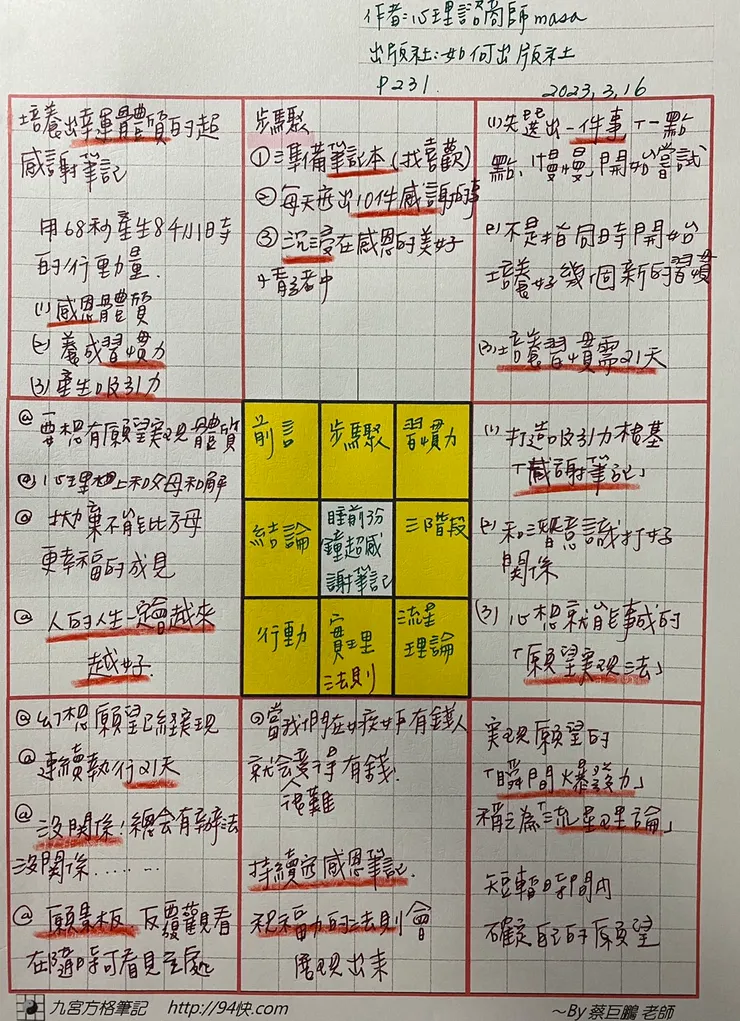 作者:心理諮商師masa
出版社:如何出版社
P231.
2023,3,16
培養出幸運體質的超
感謝筆記
用68秒產生84小時
的行動量.
(1) 感恩體質
(2) 養成習慣力
(3) 產生吸引力
步驟
① 準備筆記本(找喜歡)
② 每天寫出10件感謝的事
③ 沉浸在感恩的美好
情緒中
(1)先選出一件事,一點
點、慢慢,開始嘗試
(2)不是指同時開始
培養好幾個新的習慣
(3)培養習慣需21天
@ 要想有願望實現體質
@ 心理上和父母和解
@ 拋棄不能比父母
更幸福的成見
@ 人的人生一定會越來
越好.
前言
步驟
習慣力
結論
睡前3分
鐘超感
謝筆記
三階段
行動
實現
法則
流星
理論
(1) 打造吸引力根基
「感謝筆記」
(2) 和潛意識打好
關係
(3) 心想就能事成的
「願望實現法」
@ 幻想願望已經實現
@ 連續執行21天
@ 沒關係!總會有辦法
沒關係......
@ 願景板 反覆觀看
在隨時可看見之處
@當我們在嫉妒有錢人
就會變得有錢.
很難
持續寫感恩筆記.
祝福力的法則會
展現出來
實現願望的
「瞬間爆發力」
稱之為「流星理論」
短暫時間內
確定自己的願望
九宮方格筆記 http://94快.com
~By 蔡巨鵬 老師